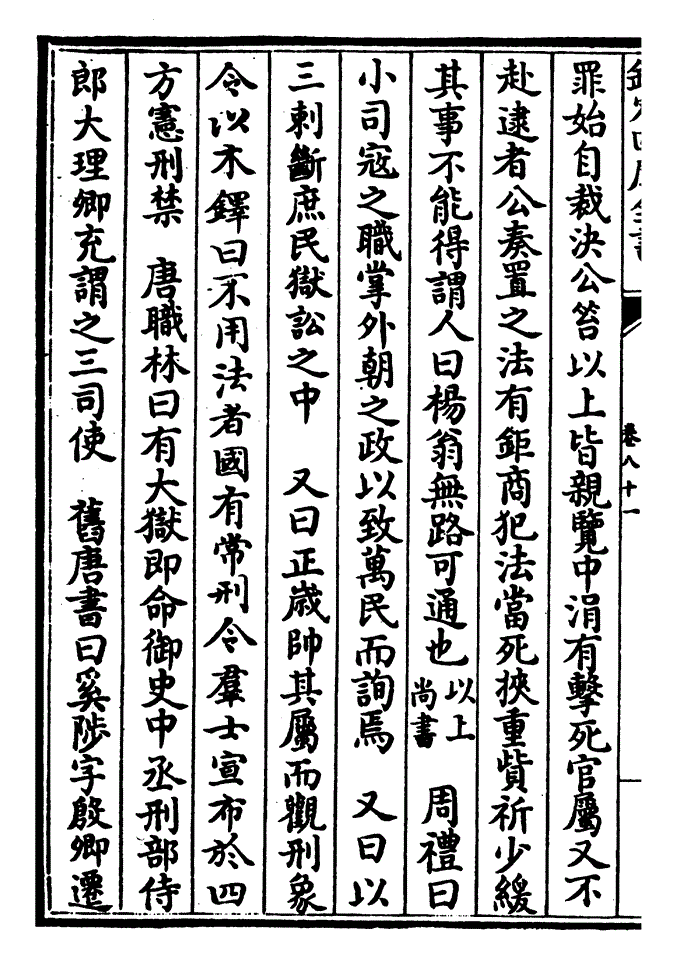 欽定四庫全書
卷八十一
罪始自裁決公笞以上皆親覽中涓有擊死官屬又不
赴逮者公奏置之法有鉅商犯法當死挾重貲祈少緩
其事不能得謂人曰楊翁無路可通也以上尚書 周禮曰
小司寇之職掌外朝之政以致萬民而詢焉 又曰以
三刺斷庶民獄訟之中 又曰正嵗帥其屬而觀刑象
令以木鐸曰不用法者國有常刑令羣士宣布於四
方憲刑禁 唐職林曰有大獄即命御史中丞刑部侍
郎大理卿充謂之三司使 舊唐書曰奚陟字殷卿遷